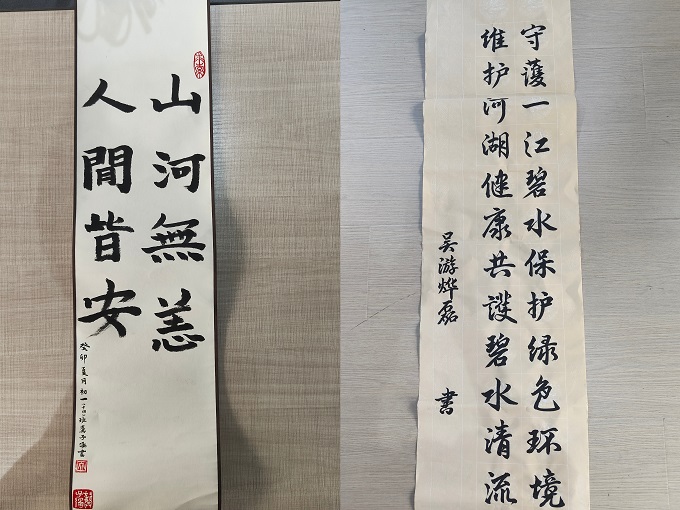 山河無恙
人間皆安
癸卯夏月初一
守護一江碧水保护绿色环境
维护河湖健康共護碧水清流
吴游烨磊 書